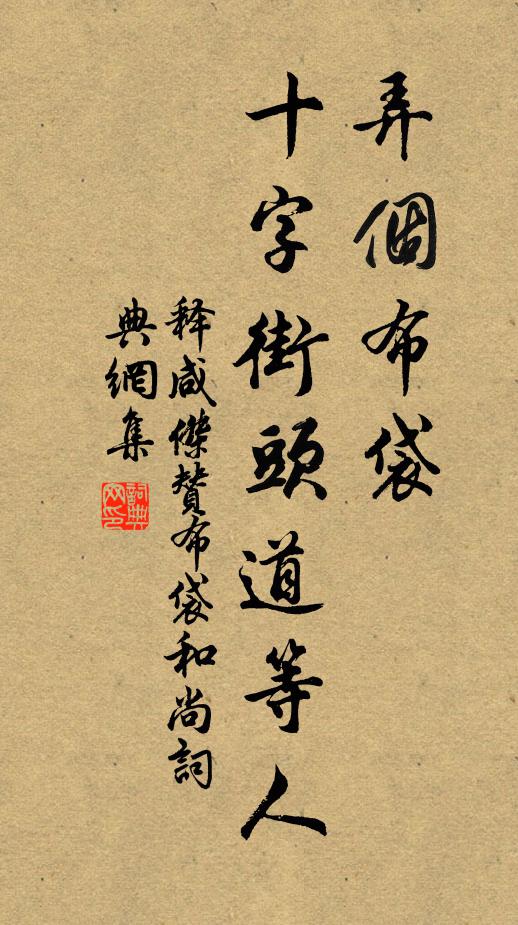 弄個布袋
十字街頭道等人
释咸傑贊布袋和尚詞
典網集
詞典网印